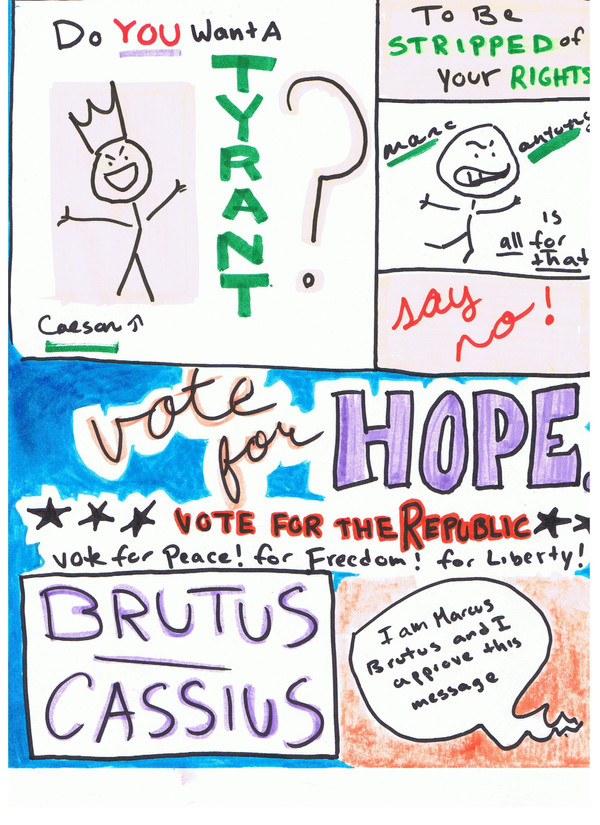 Do YOU Want A
TYRANT
?
Caesar
To Be
STRIPPED of
your RIGHTS
marc antony
is
all for
that
say
no!
vote
for
HOPE.
VOTE FOR THE REPUBLIC
Vote for Peace! for Freedom! for Liberty!
BRUTUS
CASSIUS
I am Marcus
Brutus and I
approve this
message